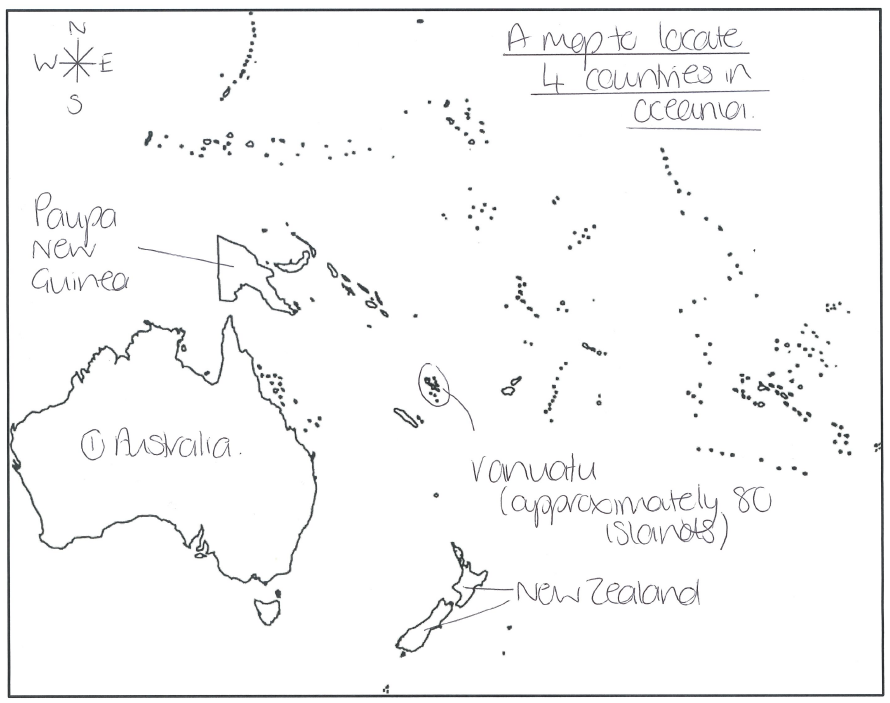 N
W E
S
A map to locate
4 countries in
oceania.
Paupa
New
Guinea
① Australia.
Vanuatu
(approximately 80
islands)
New Zealand